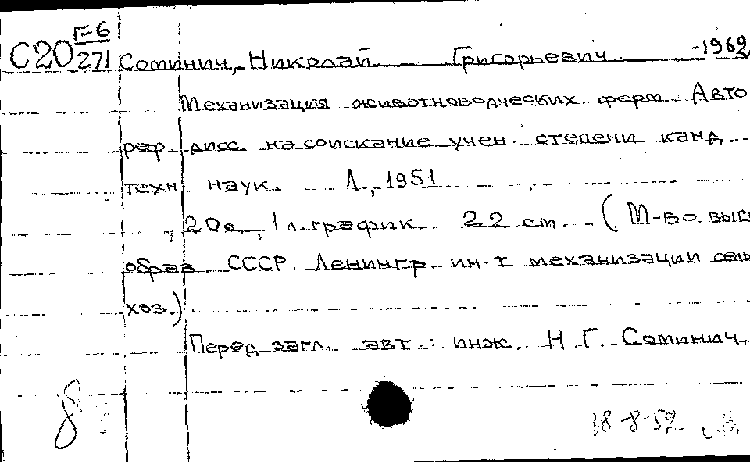 Г-6
С20 271 Соминич, Николай Григорьевич -1962
Механизация животноводческих ферм. Авто
реф. дисс. на соискание учен. степени канд.
техн. наук. Л., 1951
20 с., 1 л. график. 22 см. (М-во. высш
образ СССР. Ленингр. ин-т механизации сель
хоз.)
Перед загл. авт.: инж. Н. Г. Соминич.
8
18-8-52